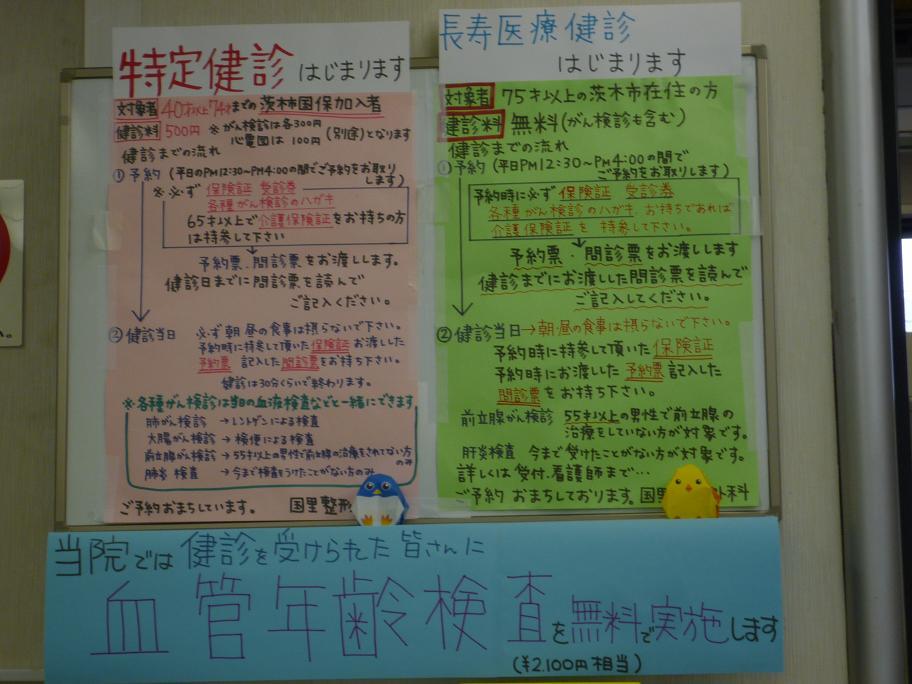 特定健診 はじまります
対象者 40才以上74才までの茨木市国保加入者
健診料 500円 ※がん検診は各300円
心電図は100円 (別途)となります
健診までの流れ
①予約 (平日PM12:30~PM4:00の間でご予約をお取りします)
※必ず 保険証 受診券
各種がん検診のハガキ
65才以上で介護保険証をお持ちの方
は持参して下さい
予約票・問診票をお渡しします。
健診日までに問診票を読んで
ご記入ください。
②健診当日 必ず朝昼の食事は摂らないで下さい。
予約時に持参して頂いた保険証 お渡しした
予約票 記入した問診票をお持ち下さい。
健診は30分くらいで終わります。
※各種がん検診は当日の血液検査などと一緒にできます
肺がん検診 →レントゲンによる検査
大腸がん検診 →検便による検査
前立腺がん検診 →55才以上の男性で前立腺の治療をされてない方
のみ
肺炎 検査 →今まで検査をうけたことがない方のみ
ご予約おまちしています。 国里整形
長寿医療健診
はじまります
対象者 75才以上の茨木市在住の方
健診料 無料(がん検診も含む)
健診までの流れ
①予約 (平日PM12:30~PM4:00の間で
ご予約をお取りします)
予約時に必ず 保険証 受診券
各種がん検診のハガキ お持ちであれば
介護保険証を 持参して下さい。
予約票・問診票をお渡しします
健診までにお渡しした問診票を読んで
ご記入してください。
②健診当日→朝・昼の食事は摂らないで下さい。
予約時に持参して頂いた 保険証
予約時にお渡しした 予約票 記入した
問診票をお持ち下さい。
前立腺がん検診 55才以上の男性で前立腺の
治療をしていない方が対象です。
肝炎検査 今まで受けたことがない方が対象です。
詳しくは受付.看護師まで…
ご予約 おまちしております。国里 ト科
当院では健診を受けられた皆さんに
血管年齢検査を無料で実施します
(¥2,100円相当)